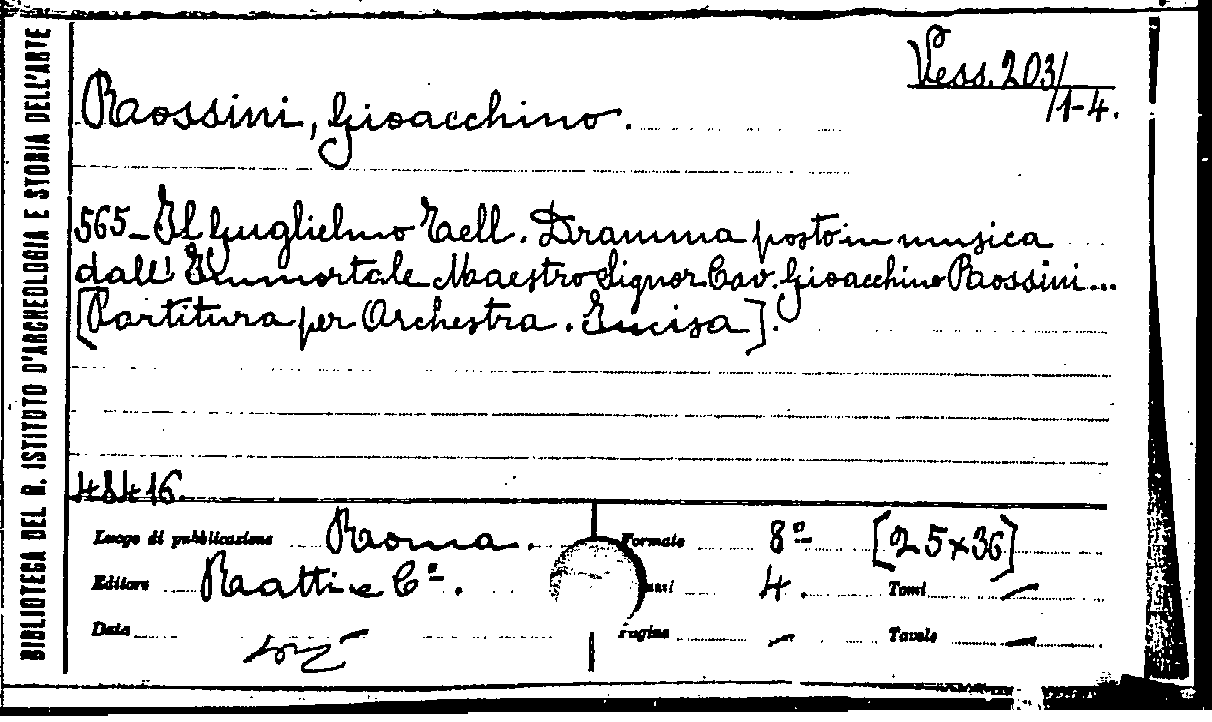 BIBLIOTECA DEL R. ISTITUTO D'ARCHEOLOGIA E STORIA DELL'ARTE
Vess. 203/
/1-4.
Rossini, Gioacchino.
565_Il Guglielmo Tell. Dramma posto in musica
dall'Immortale Maestro Signor Cav. Gioacchino Rossini...
[Partitura per Orchestra. Incisa].
48416.
Luogo di pubblicazione Roma. Formato 8º [25x36]
Editore Ratti e Cº. 4. Tomi —
Data Pagine — Tavole —